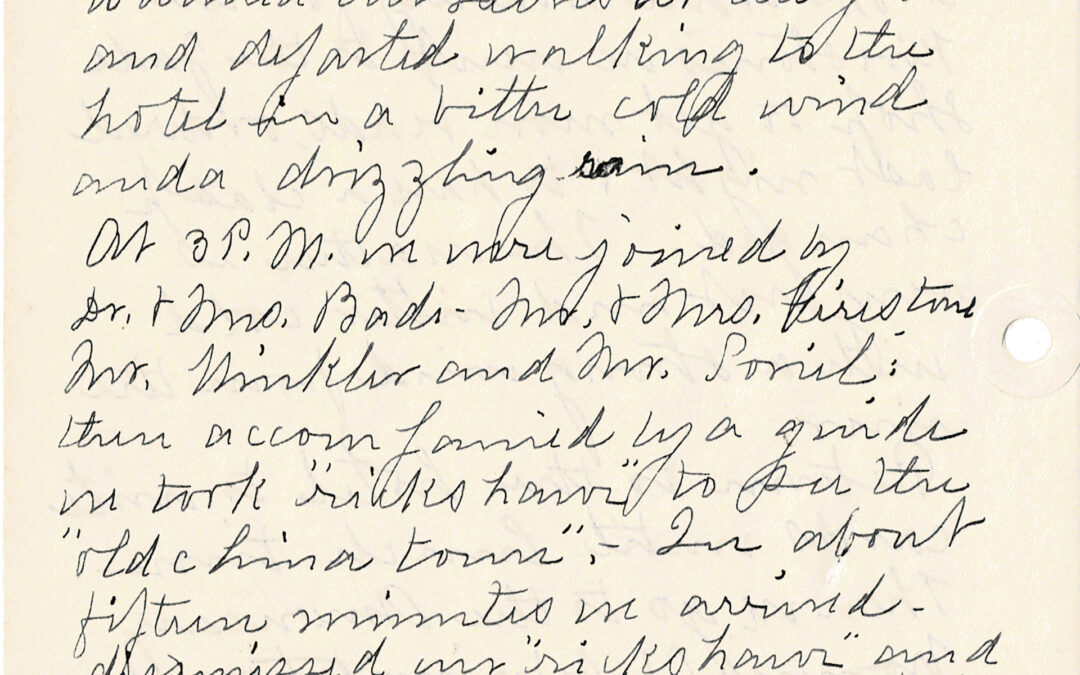 and departed walking to the
hotel in a bitter cold wind
and a drizzling rain.
At 3 P.M. we were joined by
Dr. & Mrs. Bade - Mr. & Mrs. Firestone
Mr. Winkler and Mr. Soriel:
then accompanied by a guide
we took "rickshaws" to see the
"old china town". - In about
fifteen minutes we arrived -
dismissed our "rickshaws" and